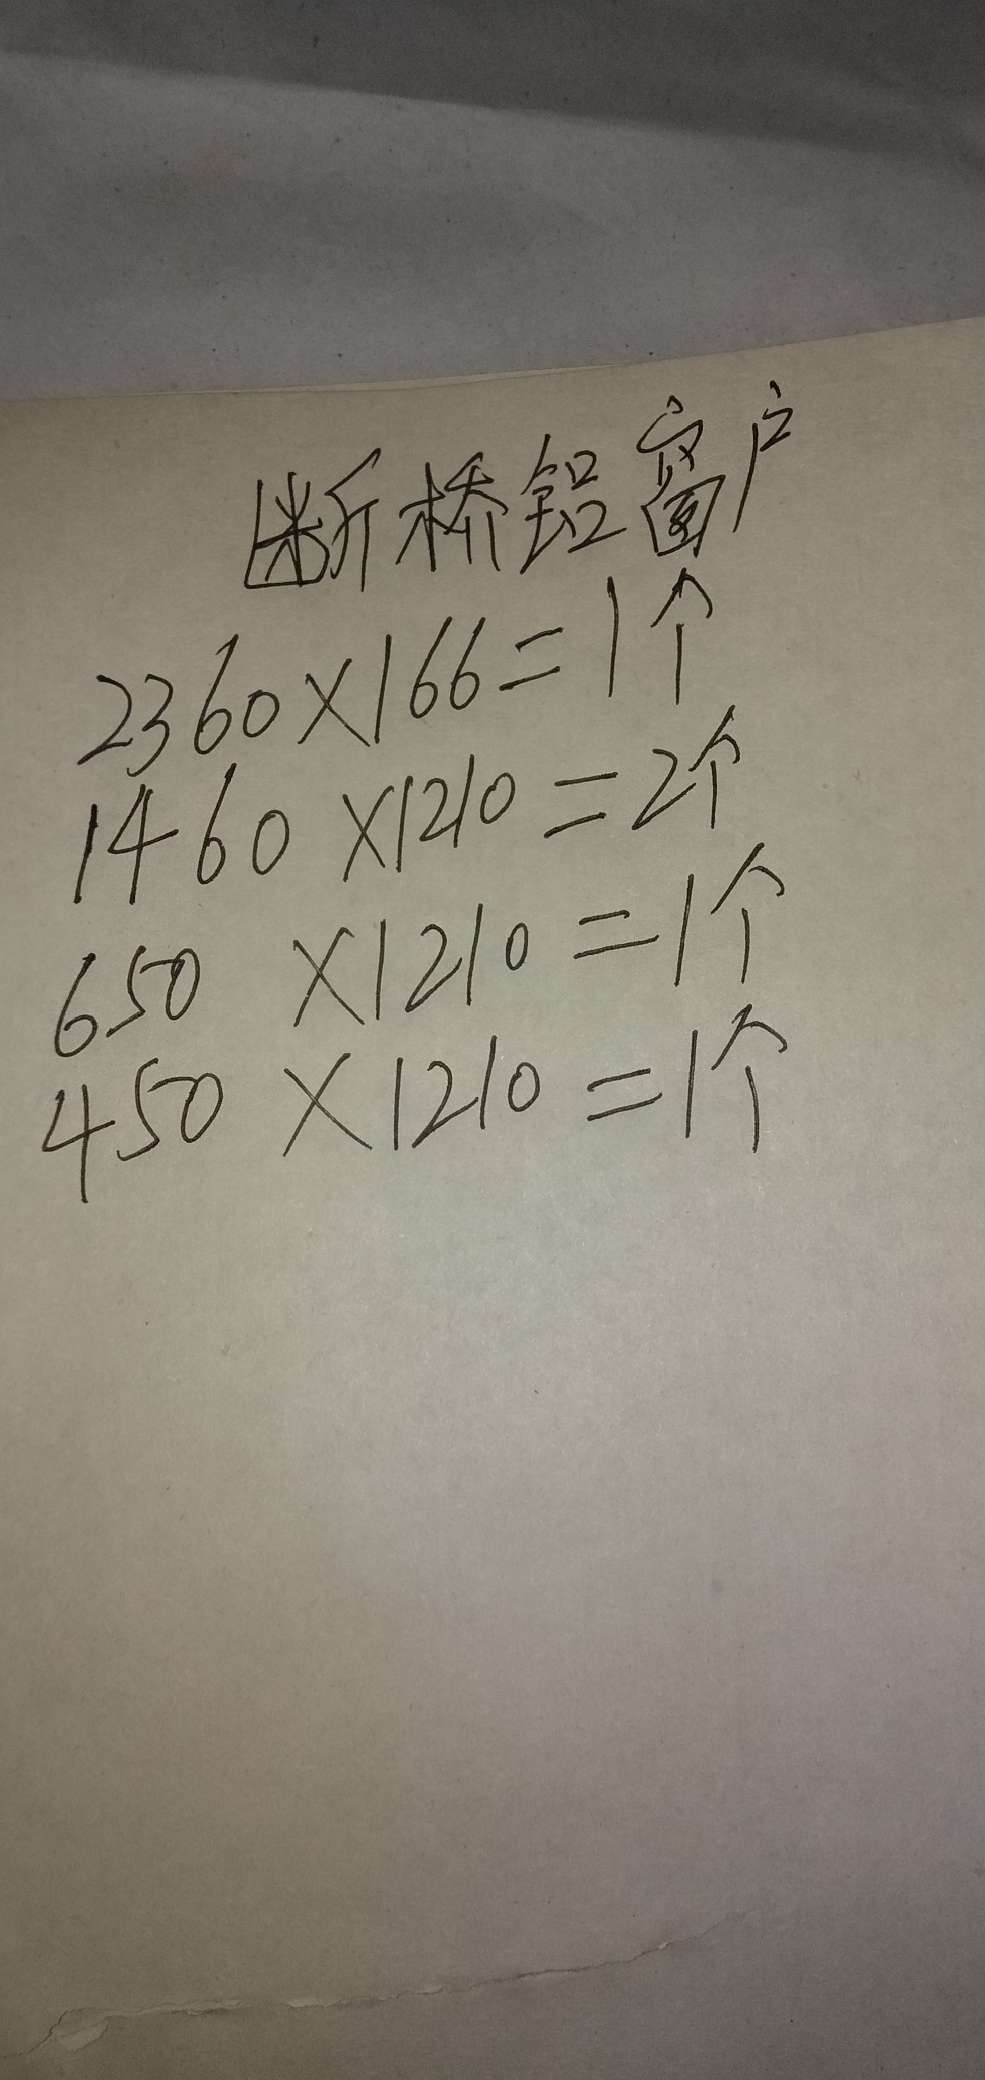 断桥铝窗户
2360×166=1个
1460×1210=2个
650×1210=1个
450×1210=1个